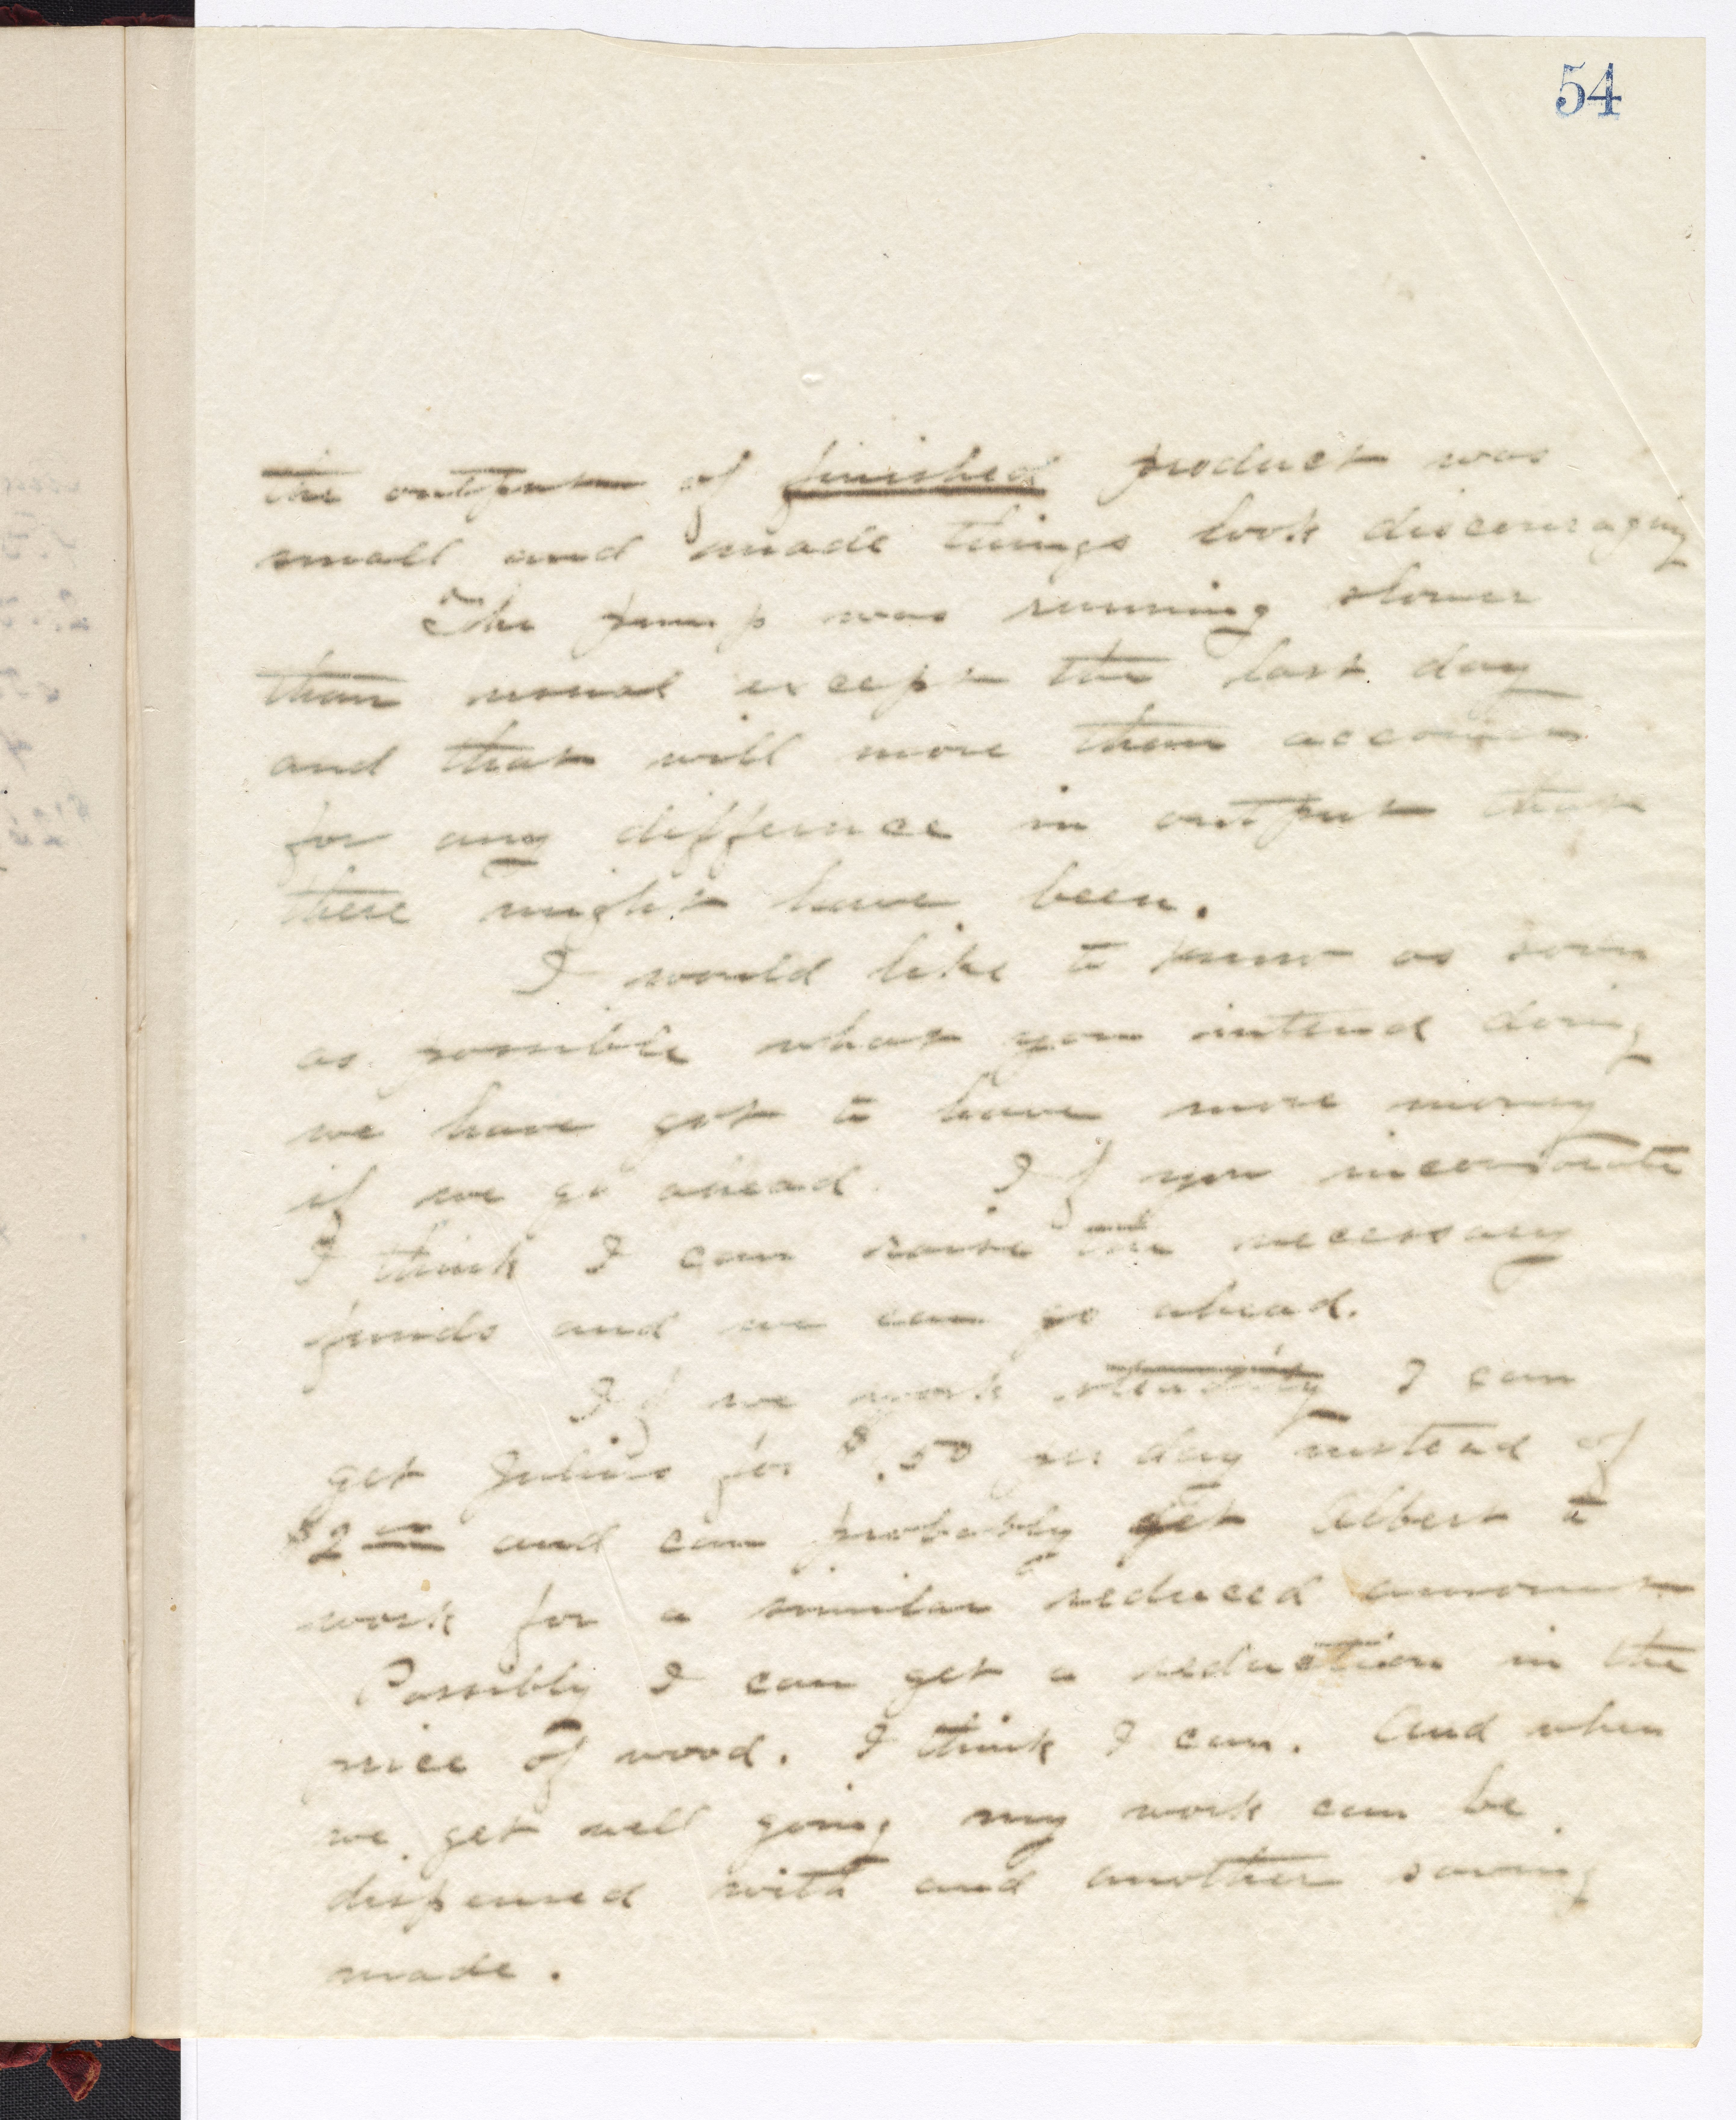 54
the output of finished product was
small and made things look discouraging
The pump was running slower
than usual except the last day
and that will more than account
for any difference in output that
there might have been.
I would like to know as soon
as possible what you intend doing
we have got to have more money
if we go ahead. If you incorporate
I think I can raise the necessary
funds and we can go ahead.
If we work steadily I can
get Julius for $1.50 per day instead of
$2 00 and can probably get Albert to
work for a similar reduced amount
Possibly I can get a reduction in the
price of wood. I think I can. And when
we get well going my work can be
dispensed with and another saving
made.